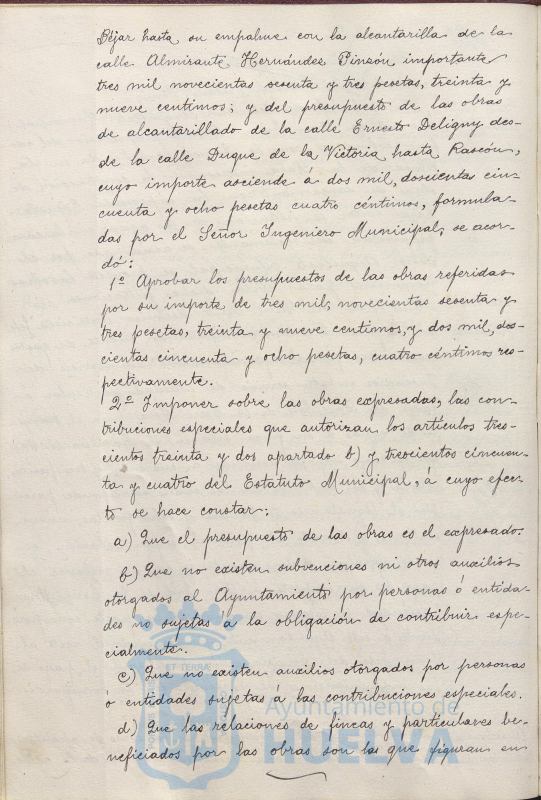 Béjar hasta su empalme con la alcantarilla de la
calle Almirante Hernández Pinzón importante
tres mil novecientas sesenta y tres pesetas, treinta y
nueve centimos; y del presupuesto de las obras
de alcantarillado de la calle Ernesto Deligny des-
de la calle Duque de la Victoria hasta Rascón,
cuyo importe asciende á dos mil, doscientas cin-
cuenta y ocho pesetas cuatro céntimos, formula-
das por el Señor Ingeniero Municipal, se acor-
dó:
1º Aprobar los presupuestos de las obras referidas
por su importe de tres mil, novecientas sesenta y
tres pesetas, treinta y nueve centimos, y dos mil, dos-
cientas cincuenta y ocho pesetas, cuatro céntimos res-
pectivamente.
2º Imponer sobre las obras expresadas, las con-
tribuciones especiales que autorizan los artículos tres-
cientos treinta y dos apartado b) y trescientos cincuen-
ta y cuatro del Estatuto Municipal, á cuyo efec-
to se hace constar:
a) Que el presupuesto de las obras es el expresado.
b) Que no existen subvenciones ni otros auxilios
otorgados al Ayuntamiento por personas ó entida-
des no sujetas a la obligación de contribuir espe-
cialmente.
c) Que no existen auxilios otorgados por personas
ó entidades sujetas á las contribuciones especiales.
d) Que las relaciones de fincas y particulares be-
neficiados por las obras son las que figuran en
ET TERRÆ
Ayuntamiento de
HUELVA